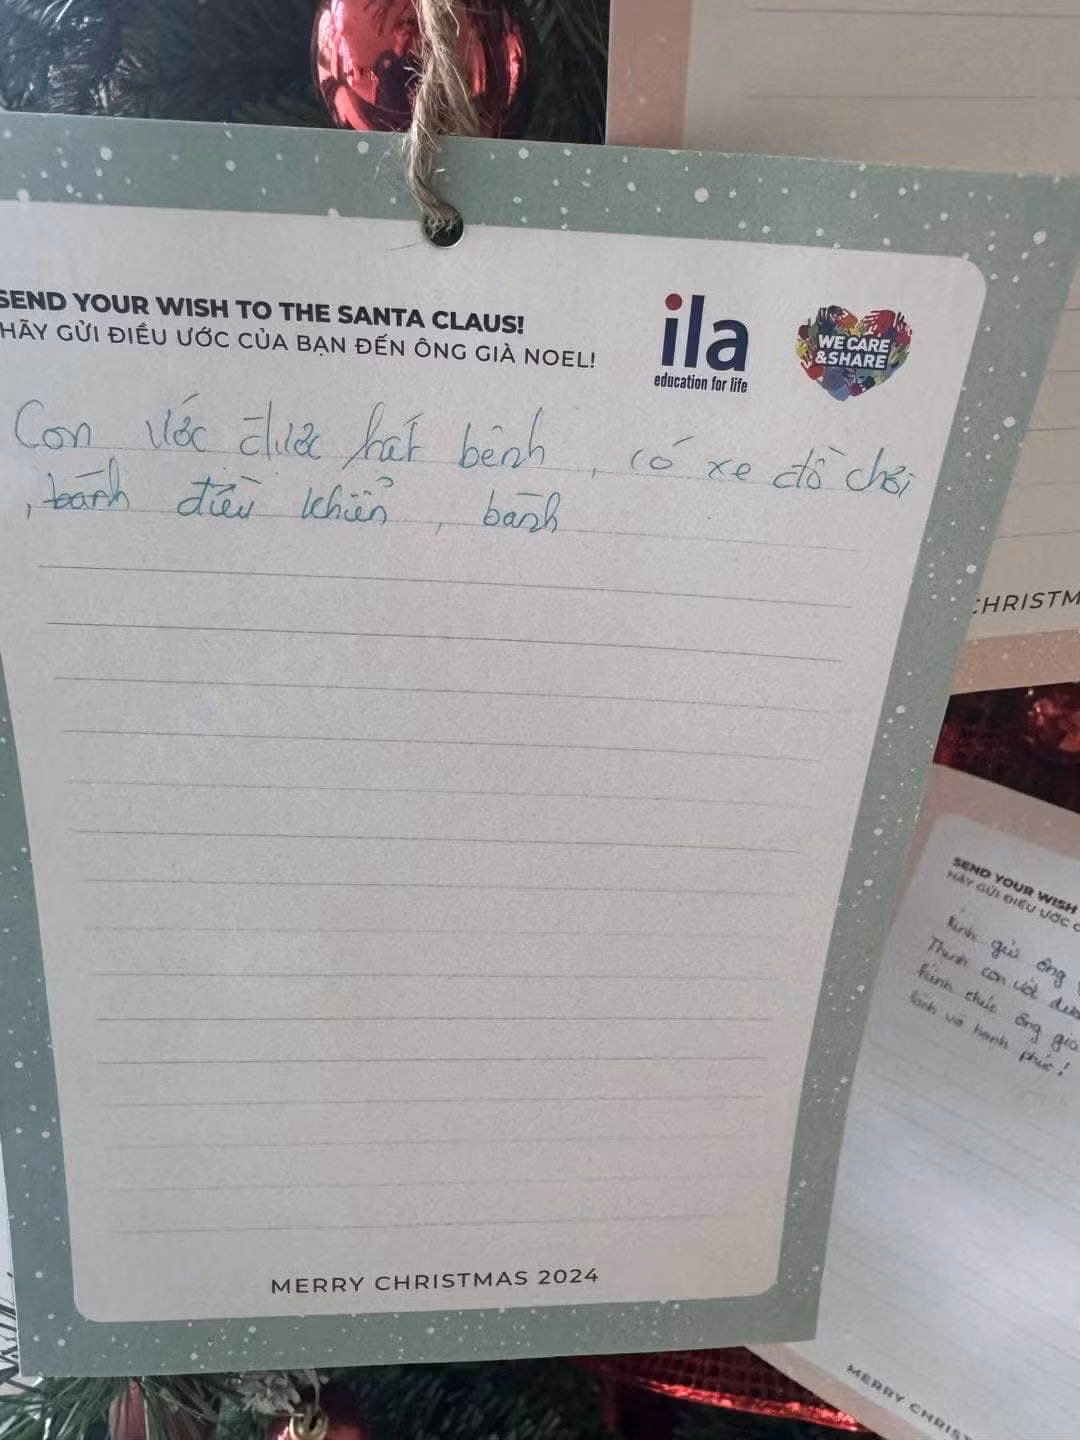 SEND YOUR WISH TO THE SANTA CLAUS!
HÃY GỬI ĐIỀU ƯỚC CỦA BẠN ĐẾN ÔNG GIÀ NOEL!
ila
education for life
WE CARE
& SHARE
Con ước được hết bệnh, có xe đồ chơi
, bánh điều khiển, bánh
MERRY CHRISTMAS 2024
CHRISTM
SEND YOUR WISH
HÃY GỬI ĐIỀU ƯỚC C
Kính gửi ông
con ước
chúc ông già
và hạnh phúc!
MERRY CHRIST